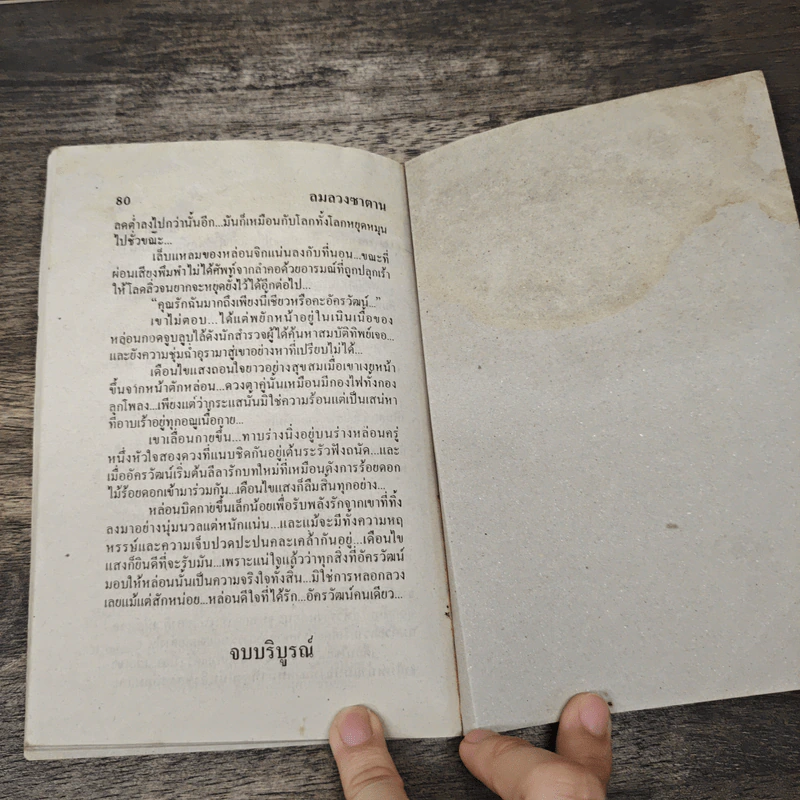 80 ลมลวงซาตาน
ลดต่ำลงไปกว่านั้นอีก...มันก็เหมือนกับโลกทั้งโลกหยุดหมุน
ไปชั่วขณะ...
เล็บแหลมของหล่อนจิกแน่นลงกับที่นอน...ขณะที่
ผ่อนเสียงพึมพำไม่ได้ศัพท์จากลำคอด้วยอารมณ์ที่ถูกปลุกเร้า
ให้โลดลิ่วจนยากจะหยุดยั้งไว้ได้อีกต่อไป...
“คุณรักฉันมากถึงเพียงนี้เชียวหรือคะอัครวัฒน์...”
เขาไม่ตอบ...ได้แต่พยักหน้าอยู่ในเนินเนื้อของ
หล่อนกอดจูบลูบไล้ดังนักสำรวจผู้ได้ค้นหาสมบัติทิพย์เจอ...
และยังความชุ่มฉ่ำอุรามาสู่เขาอย่างหาที่เปรียบไม่ได้...
เดือนไขแสงถอนใจยาวอย่างสุขสมเมื่อเขาเงยหน้า
ขึ้นจากหน้าตักหล่อน...ดวงตาคู่นั้นเหมือนมีกองไฟทั้งกอง
ลุกโพลง...เพียงแต่ว่ากระแสนั้นมิใช่ความร้อนแต่เป็นเสน่หา
ที่อาบเร้าอยู่ทุกอณูเนื้อกาย...
เขาเลื่อนกายขึ้น...ทาบร่างนิ่งอยู่บนร่างหล่อนครู่
หนึ่งหัวใจสองดวงที่แนบชิดกันอยู่เต้นระรัวฟังถนัด...และ
เมื่ออัครวัฒน์เริ่มต้นลีลารักบทใหม่ที่เหมือนดังการร้อยดอก
ไม้ร้อยดอกเข้ามาร่วมกัน...เดือนไขแสงก็ลืมสิ้นทุกอย่าง...
หล่อนบิดกายขึ้นเล็กน้อยเพื่อรับพลังรักจากเขาที่ทิ้ง
ลงมาอย่างนุ่มนวลแต่หนักแน่น...และแม้จะมีทั้งความหฤ
หรรษ์และความเจ็บปวดปะปนคละเคล้ากันอยู่...เดือนไข
แสงก็ยินดีที่จะรับมัน...เพราะแน่ใจแล้วว่าทุกสิ่งที่อัครวัฒน์
มอบให้หล่อนนั้นเป็นความจริงใจทั้งสิ้น...มิใช่การหลอกลวง
เลยแม้แต่สักหน่อย...หล่อนดีใจที่ได้รัก...อัครวัฒน์คนเดียว...
จบบริบูรณ์